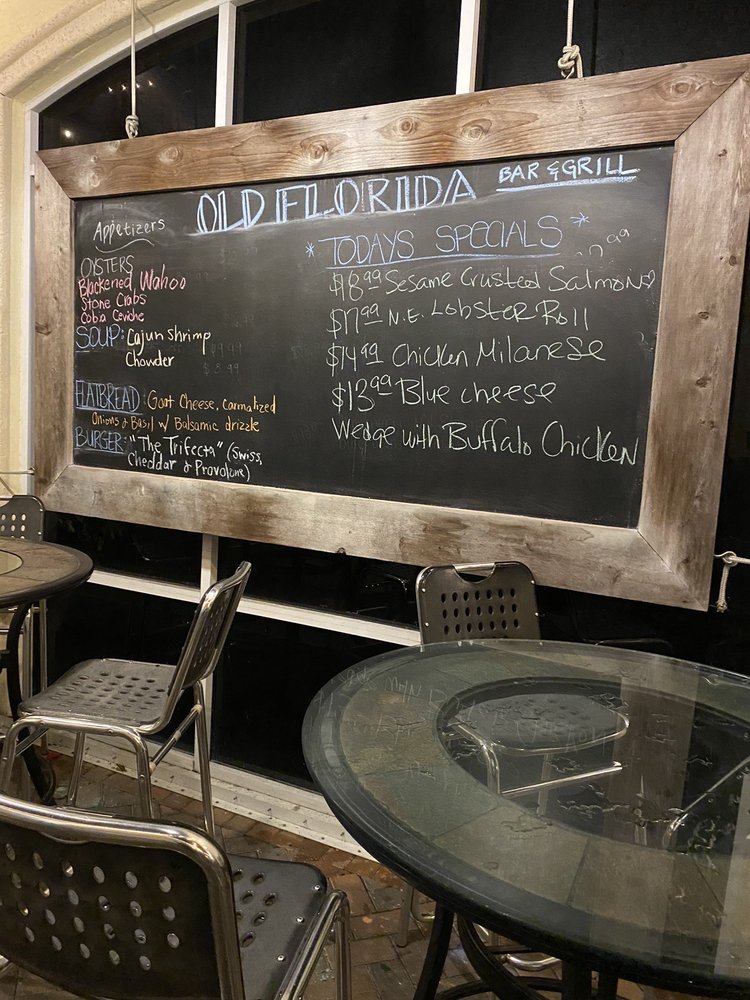 OLD FLORIDA BAR & GRILL
Appetizers
OYSTERS
Blackened Wahoo
Stone Crabs
Cobia Ceviche
SOUP: Cajun Shrimp
Chowder
$8.99
FLATBREAD: Goat Cheese, Carmalized
Onions & Basil w/ Balsamic drizzle
BURGER: "The Trifecta" (Swiss,
Cheddar & Provolone)
*TODAYS SPECIALS*
$18.99 Sesame Crusted Salmon
$17.99 N.E. Lobster Roll
$14.99 Chicken Milanese
$13.99 Blue cheese
Wedge with Buffalo Chicken